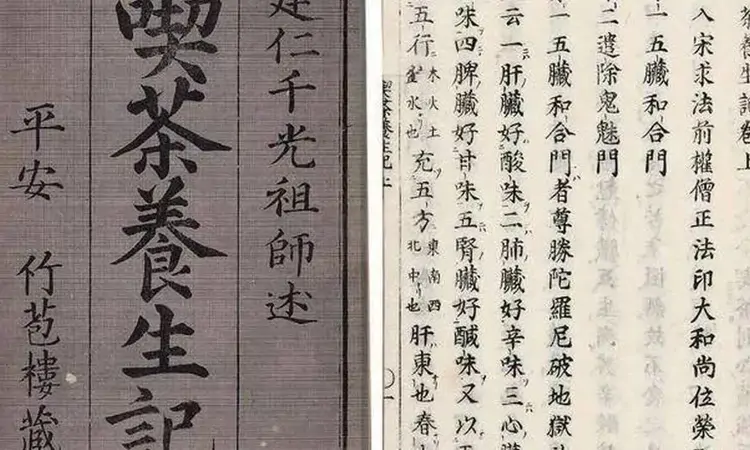 建仁千光祖師述
喫茶養生記
平安 竹苞樓藏
茶養生記卷上
入宋求法前權僧正法印大和尚位榮
一五臟和合門
二遣除鬼魅門
一五臟和合門者尊勝陀羅尼破地獄
云一肝臟好酸味二肺臟好辛味三心臟
味四脾臟好甘味五腎臟好鹹味又以五
五行木火土金水也充五方東南西北中也肝東也春